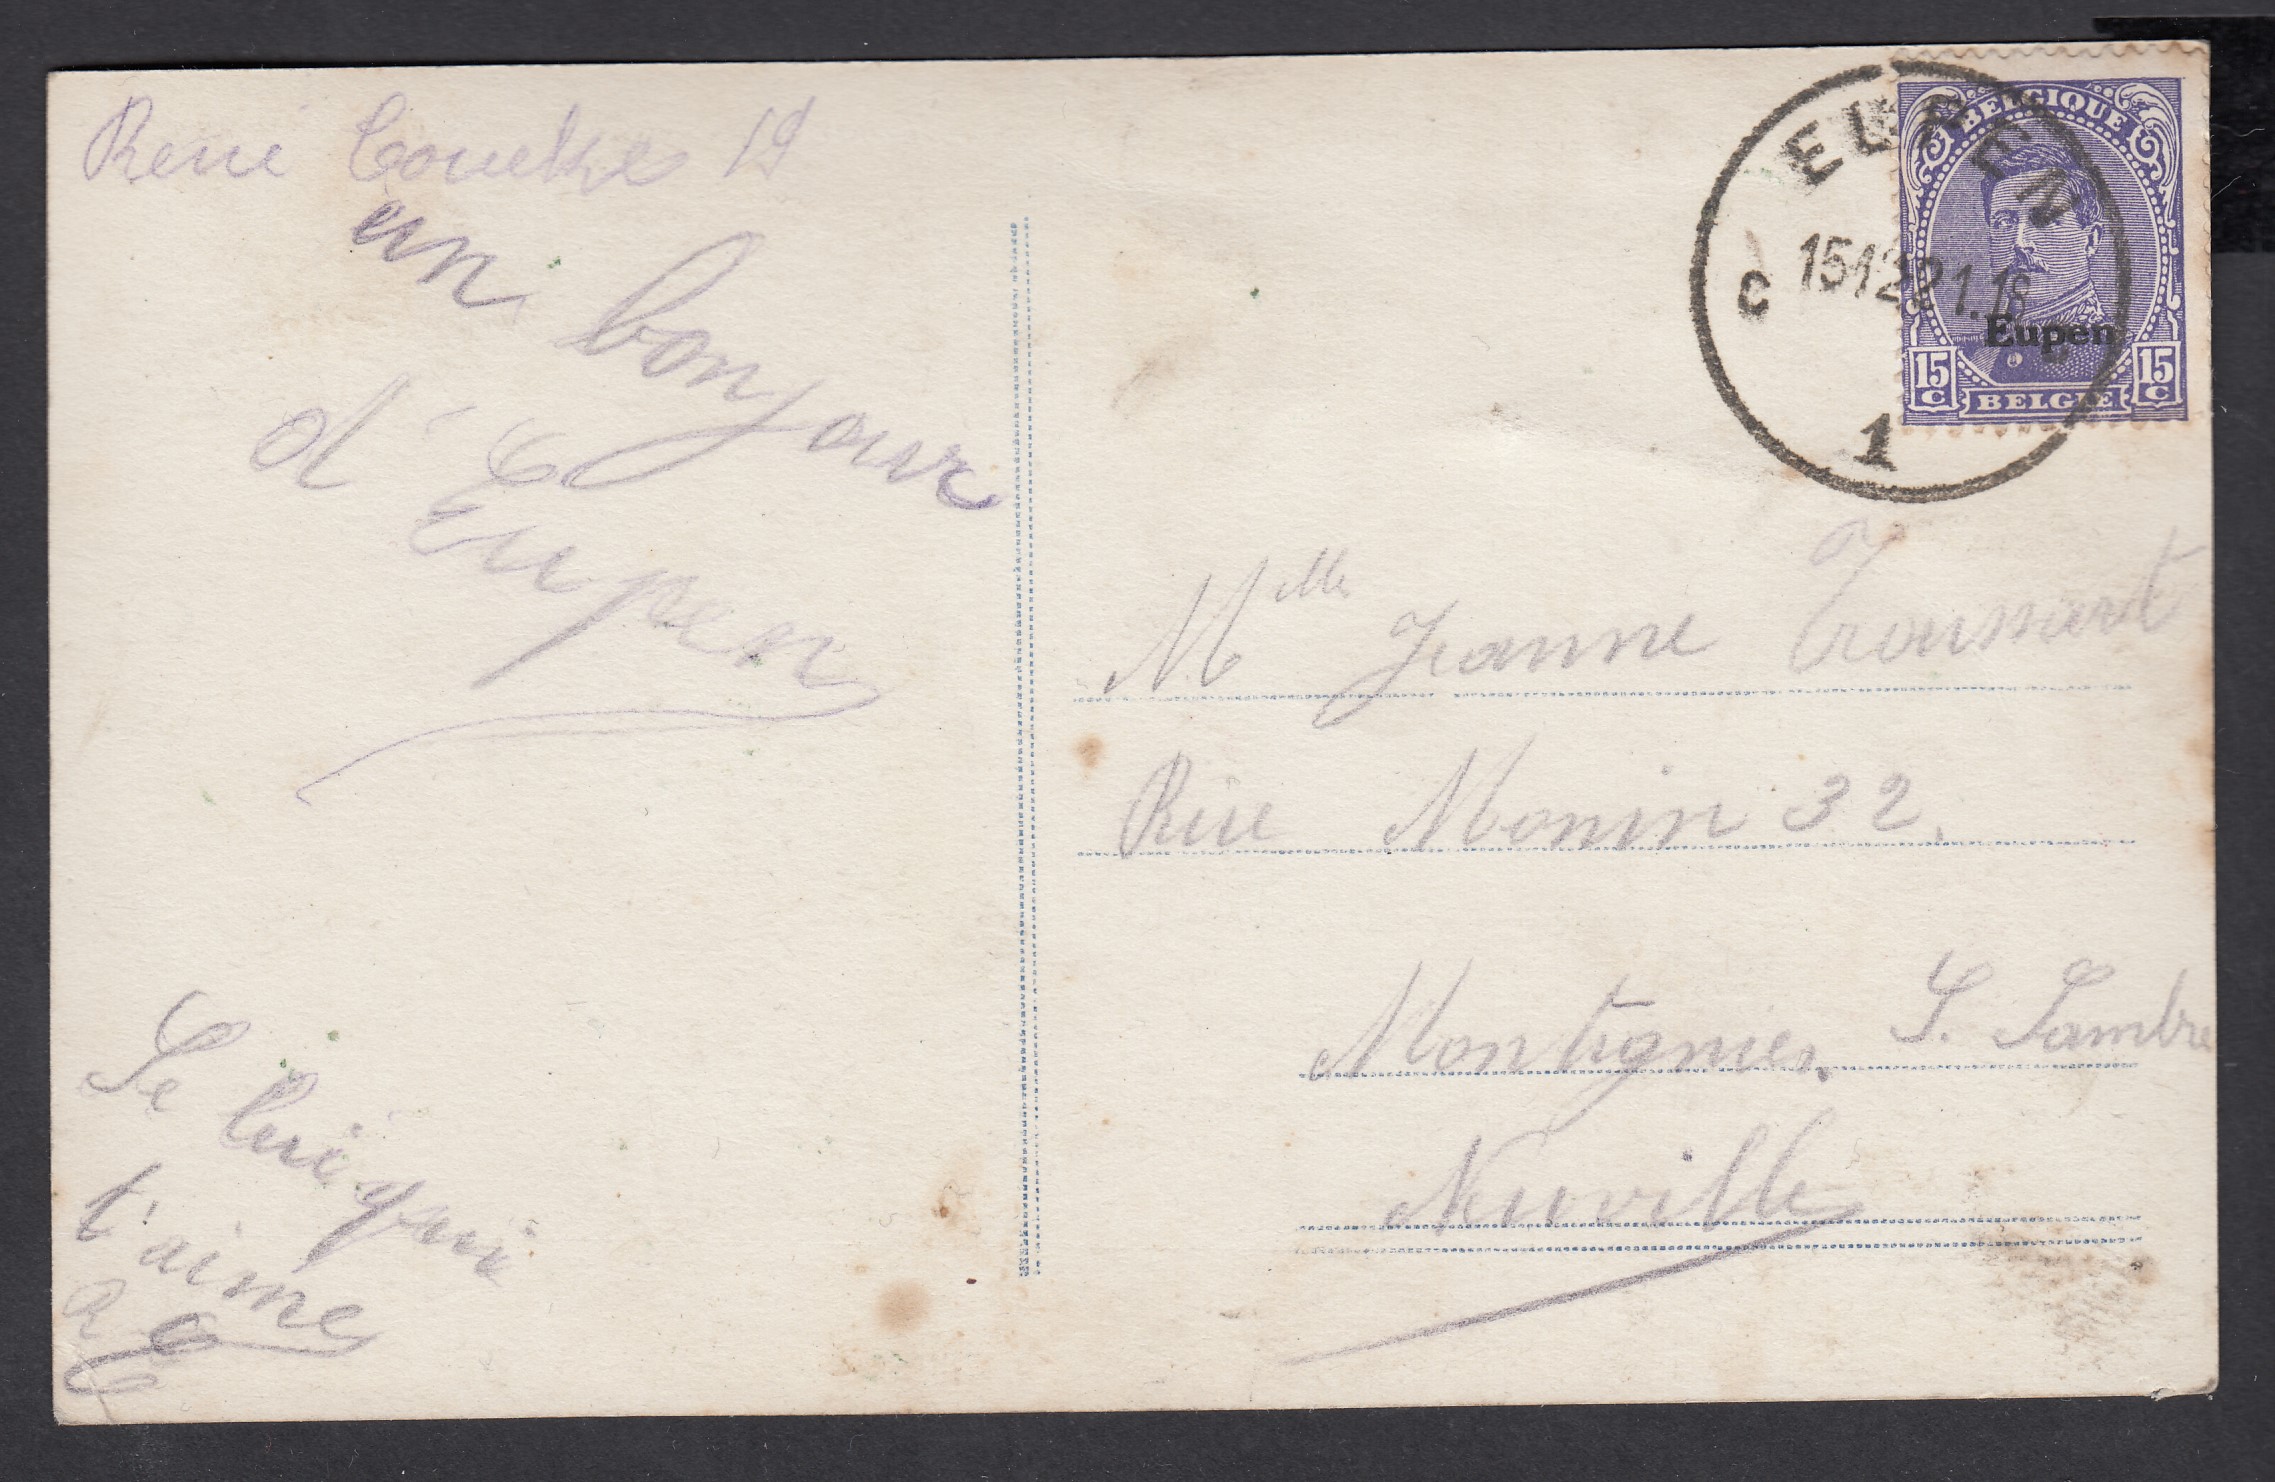 René
un bonjour
d'Eupen
Le lui qui
t'aime
R
EUPEN
C 151221.18
1
BELGIQUE
Eupen
15 C 15 C
BELGIE
Mlle Jeanne Troussart
Rue Monin 32.
Montignies. S. Sambre
Neuville